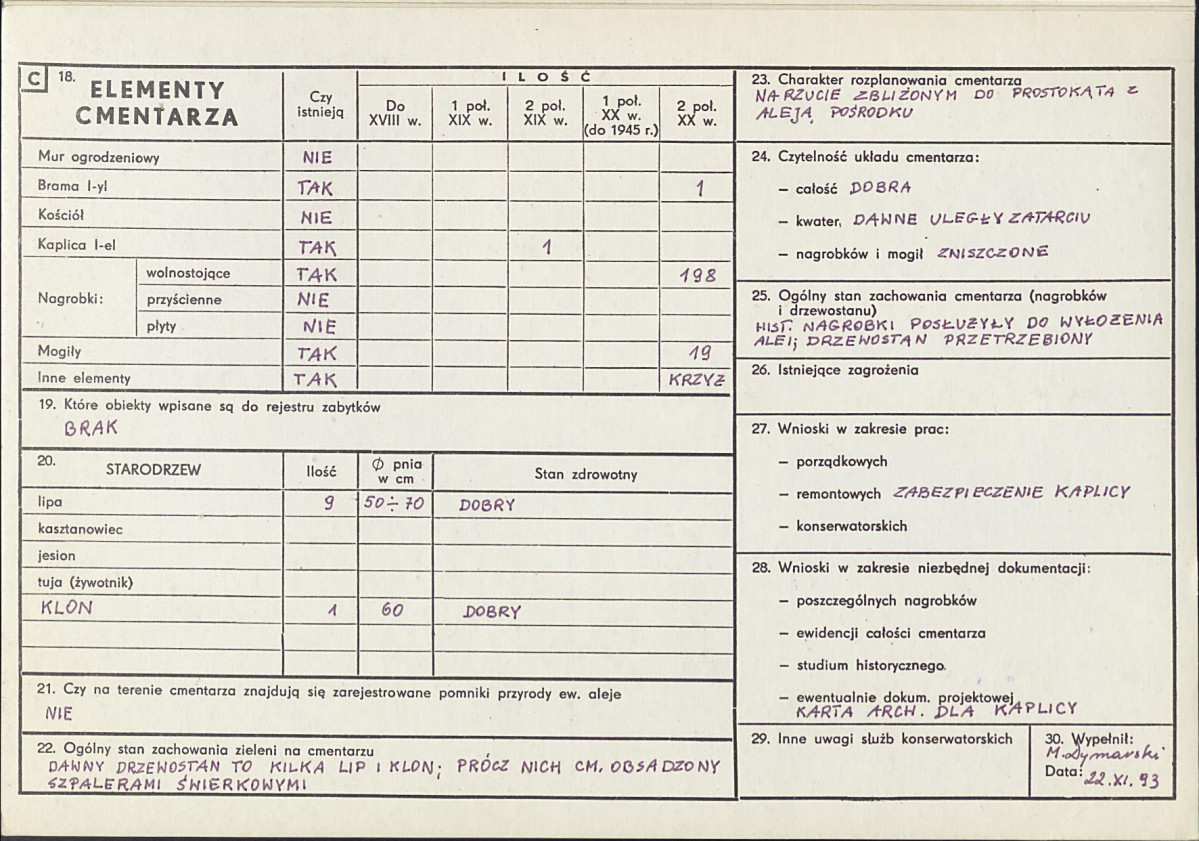 C 18. ELEMENTY CMENTARZA
Czy istnieją
ILOŚĆ
Do XVIII w.
1 poł. XIX w.
2 poł. XIX w.
1 poł. XX w. (do 1945 r.)
2 poł. XX w.
Mur ogrodzeniowy NIE
Brama I-yl TAK 1
Kościół NIE
Kaplica I-el TAK 1
Nagrobki:
wolnostojące TAK 198
przyścienne NIE
płyty NIE
Mogiły TAK 19
Inne elementy TAK KRZYŻ
19. Które obiekty wpisane są do rejestru zabytków
BRAK
20. STARODRZEW Ilość Ø pnia w cm Stan zdrowotny
lipa 9 50÷70 DOBRY
kasztanowiec
jesion
tuja (żywotnik)
KLON 1 60 DOBRY
21. Czy na terenie cmentarza znajdują się zarejestrowane pomniki przyrody ew. aleje
NIE
22. Ogólny stan zachowania zieleni na cmentarzu
DAWNY DRZEWOSTAN TO KILKA LIP I KLON; PRÓCZ NICH CM. OBSADZONY
SZPALERAMI ŚWIERKOWYMI
23. Charakter rozplanowania cmentarza
NA RZUCIE ZBLIŻONYM DO PROSTOKĄTA Z
ALEJĄ POŚRODKU
24. Czytelność układu cmentarza:
– całość DOBRA
– kwater, DAWNE ULEGŁY ZATARCIU
– nagrobków i mogił ZNISZCZONE
25. Ogólny stan zachowania cmentarza (nagrobków
i drzewostanu)
HIST. NAGROBKI POSŁUŻYŁY DO WYŁOŻENIA
ALEI; DRZEWOSTAN PRZETRZEBIONY
26. Istniejące zagrożenia
27. Wnioski w zakresie prac:
– porządkowych
– remontowych ZABEZPIECZENIE KAPLICY
– konserwatorskich
28. Wnioski w zakresie niezbędnej dokumentacji:
– poszczególnych nagrobków
– ewidencji całości cmentarza
– studium historycznego.
– ewentualnie dokum. projektowej
KARTA ARCH. DLA KAPLICY
29. Inne uwagi służb konserwatorskich
30. Wypełnił:
M. Dymarski
Data: 22.XI.93